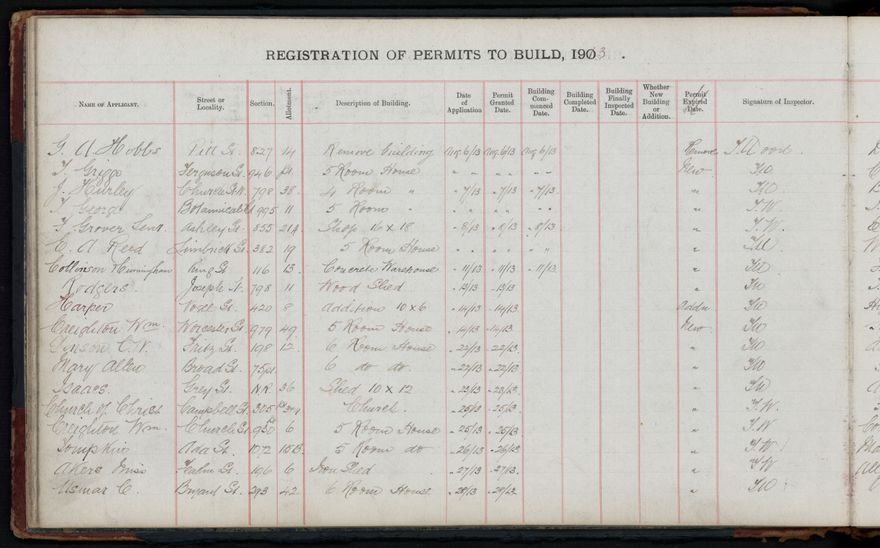 REGISTRATION OF PERMITS TO BUILD, 1903 .
NAME OF APPLICANT. Street or Locality. Section. Allotment. Description of Building. Date of Application Permit Granted Date. Building Commenced Date. Building Completed Date. Building Finally Inspected Date. Whether New Building or Addition. Permit Expired Date. Signature of Inspector.
G. A. Hobbs Pitt St. 827 14 Remove building Aug. 6/13 Aug. 6/13 Aug 6/13 Remove
T. Griggs Ferguson St. 946 5 Room House " " " " " " New
J. Hurley Church St. N. 798 38 4 Room " " 7/13 " 7/13 " 7/13 "
T. George Botanical Rd 995 11 5 Room " " " " " " " " T.W.
T. Grover Senr. Ashley St. 855 214 Shop 16 x 18 " 8/13 " 8/13 " 8/13 " T.W.
C. A. Reed Limbrick St. 382 19 5 Room House " " " " " " "
Collinson & Cunningham King St 116 13 Concrete Warehouse " 11/13 " 11/13 " 11/13 "
Rodgers. Joseph St. 798 11 Wood Shed " 13/13 " 13/13 "
Harper 420 8 Addition 10 x 6 " 14/13 " 14/13 Addn
Creighton Wm. Worcester St. 979 49 5 Room House " 14/13 " 14/13 New
C.W. Fritz St. 198 12 6 Room House " 22/13 " 22/13 "
Mary Allen Broad St. 6 do do " 22/13 " 22/13 "
Isaacs. Grey St. N.R. 36 Shed 10 x 12 " 23/13 " 23/13 "
Church of Christ Campbell St. 305 Church. " 25/13 " 25/13 " T.W.
Creighton Wm. Church St. 950 6 5 Room House " 25/13 " 25/13 " T.W
Tompkins Ada St. 1072 5 Room do " 26/13 " 26/13 " T.W.
Akers Miss 196 6 Iron Shed " 27/13 " 27/13 " T.W
Usmar C. Bryant St. 293 42 6 Room House " 29/13 " 29/13 "